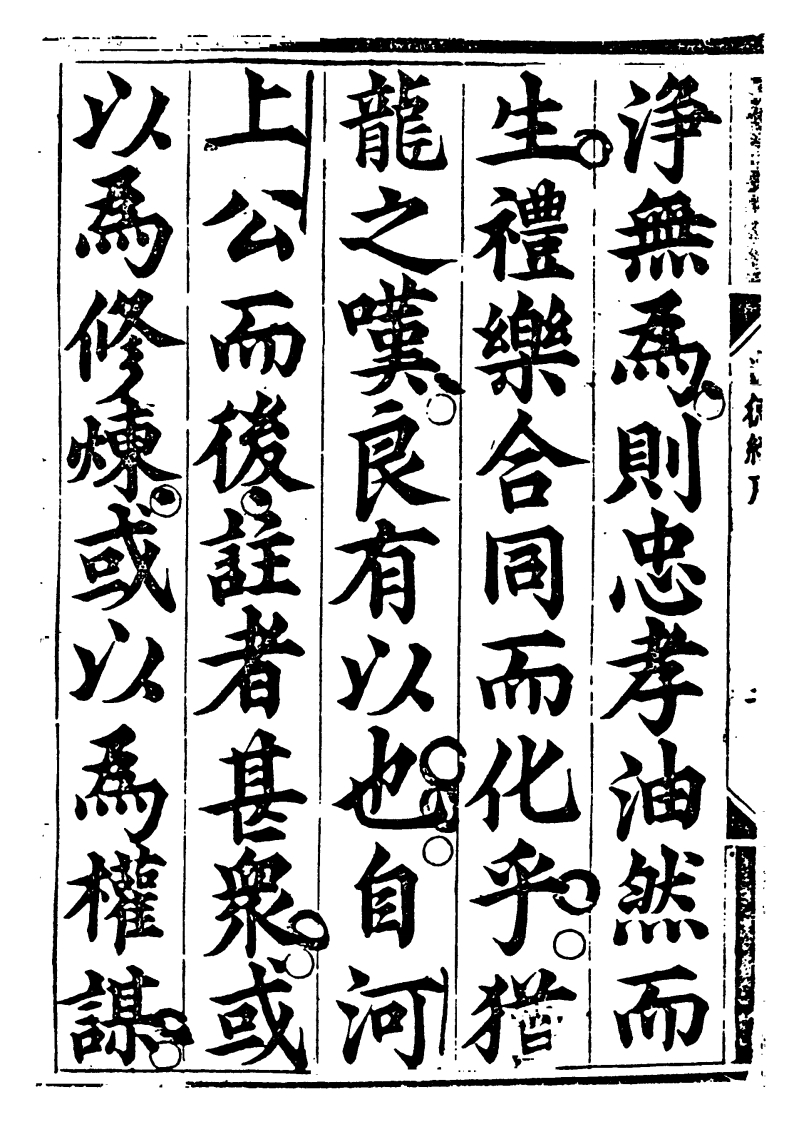 淨無爲則忠孝油然而
生禮樂合同而化乎猶
龍之嘆良有以也自河
上公而後註者甚衆或
以爲修煉或以爲權謀